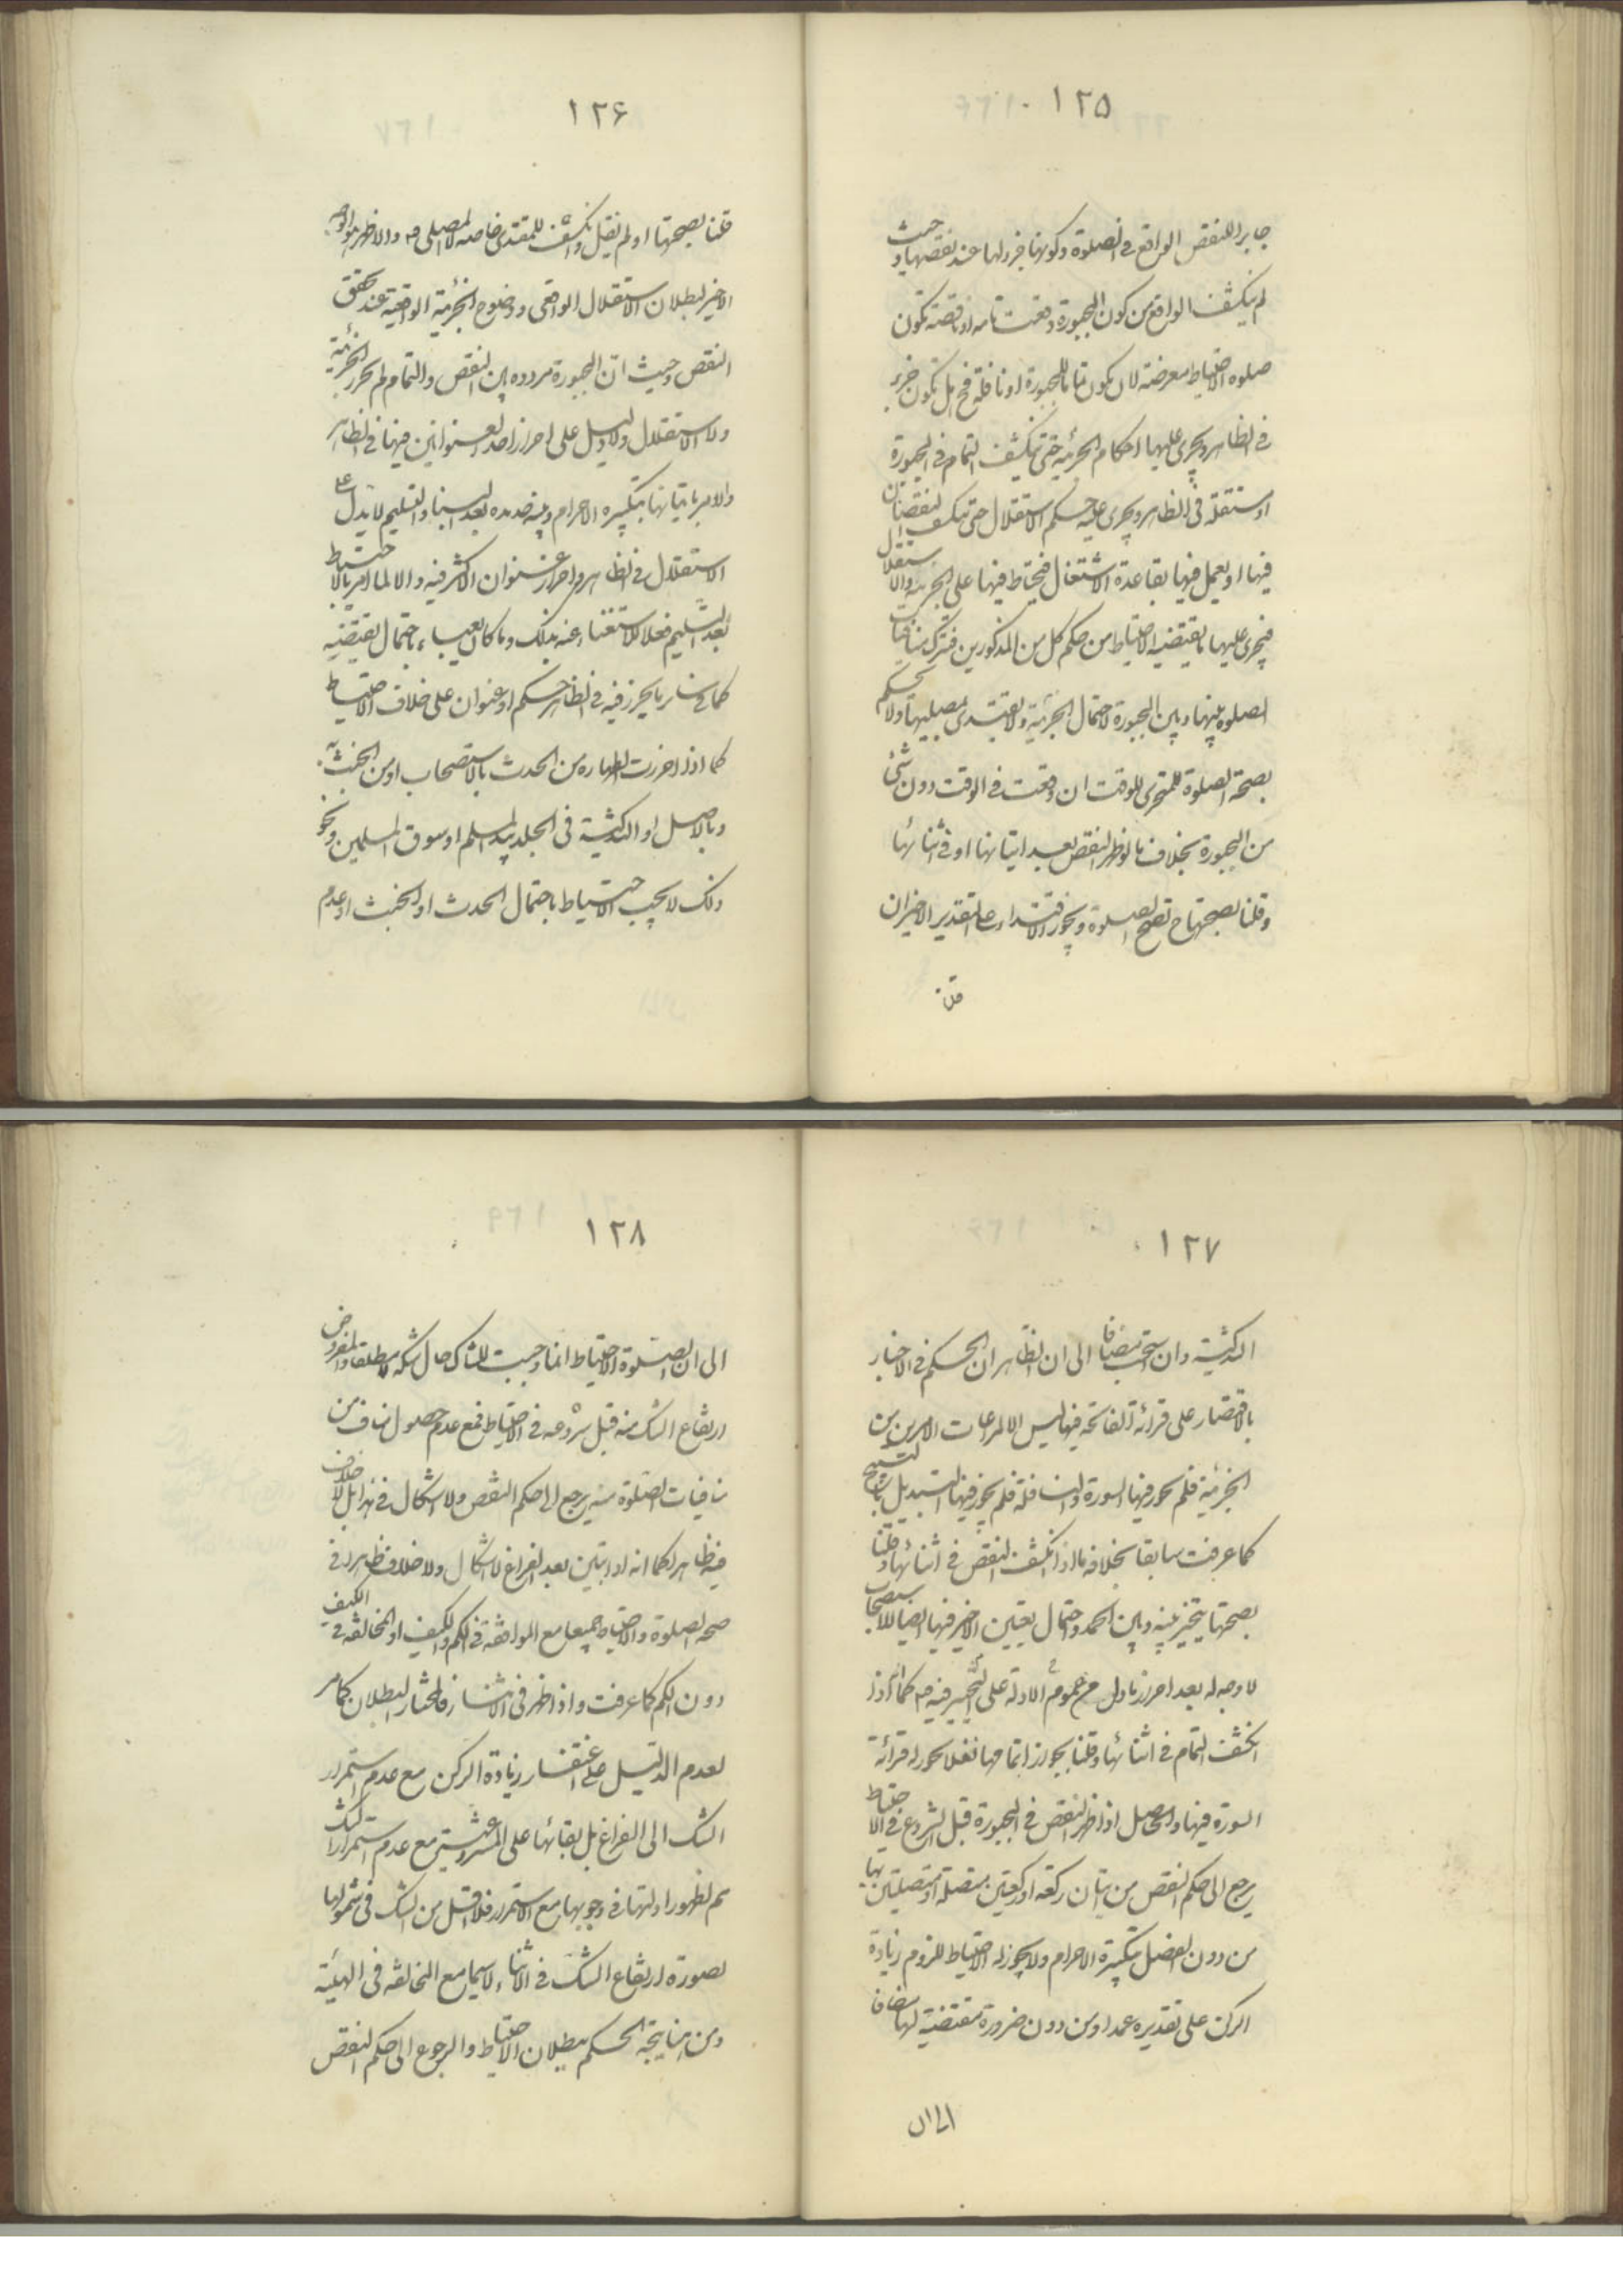 ١٢٥
جابر اللنقص الواقع فى الصلوة وكونها جزء لها عند نقصها وحيث
لم ينكشف الواقع من كون المجبورة وقعت تامه او ناقصته تكون
صلوه الاحتياط معرضته لان يكون متما للمجبورة او نافلة فح هل تكون جزء
فى الظاهر ويجرى عليها احكام الجزئيه حتى ينكشف التمام فى المجبورة
او مستقلة فى الظاهر ويجرى عليه حكم الاستقلال حتى ينكشف النقصان
فيها او يعمل فيها بقاعدة الاشتغال فيحتاط فيها على الجزئيه والاستقلال
فيجرى عليها ما يقتضيه الاحتياط من حكم كل من المذكورين فترك منافيات
الصلوه بينها وبين المجبورة لاحتمال الجزئية ولا يقتدى بمصليها ولا يحكم
بصحة الصلوة للمتحرى للوقت ان وقعت فى الوقت دون شئ
من المجبورة بخلاف ما لو ظهر النقص بعد اتيانها او فى اثنائها
وقلنا بصحتها ح تصح الصلوة ويجوز الاقتداء على التقدير الاخير ان
قلنا
١٢۶
قلنا بصحتها او لم نقل وانكشف للمقتدى خاصه لا المصلى والاظهر هو الوجه
الاخير لبطلان الاستقلال الواقعى ووضوح الجزئية الواقعيه عند تحقق
النقص وحيث ان المجبورة مردده بين النقص والتمام لم تحرز الجزئية
ولا الاستقلال ولا دليل على احراز احد العنوانين فيها فى الظاهر
والامر باتيانها بتكبيره الاحرام ونيه جديده بعد البناء والتسليم لا يدل على
الاستقلال فى الظاهر واحراز عنوان الاكثر فيه والا لما امر بالاحتياط
بعد التسليم فعلا للاستغناء عنه بذلك وما كان يعباء باحتمال يقتضيه
كما فى سائر ما يحرز فيه فى الظاهر حكم او عنوان على خلاف الاحتياط
كما اذا احرزت الطهاره من الحدث بالاستصحاب او من الخبث به
وبالاصل او التذكية فى الجلد بيد المسلم او سوق المسلمين ونحو
ذلك لا يجب الاحتياط باحتمال الحدث او الخبث او عدم
١٢٧
التذكية وان استحب مضافا الى ان الظاهر ان الحكم فى الاخبار
بالاقتصار على قرائة الفاتحه فيها ليس الا لمراعات الامرين من
الجزئية فلم يجوز فيها السورة والنافلة فلم يجوز فيها التبديل بالتسبيح
كما عرفت سابقا بخلافه ما اذا انكشف النقص فى اثنائها وقلنا
بصحتها يتخير بينه وبين الحمد واحتمال تعيين الاخير فيها ايضا للاستصحاب
لا وجه له بعد احراز ما دل من عموم الادلة على التخيير فيه كما انه اذا
انكشف التمام فى اثنائها وقلنا بجواز اتمامها نفلا يجوز له قرائة
السورة فيها والحاصل اذا ظهر النقص فى المجبورة قبل الشروع فى الاحتياط
يرجع الى حكم النقص من اتيان ركعة او ركعتين متصلة او متصلتين بها
من دون الفصل بتكبيرة الاحرام ولا يجوز له الاحتياط للزوم زيادة
الركن على تقديره عمدا ومن دون ضرورة مقتضية لها مضافا
الى ان
١٢٨
الى ان الصلوة الاحتياط انما وجبت للشاك حال شكه لا مطلقا والمفروض
ارتفاع الشك منه قبل شروعه فى الاحتياط فمع عدم حصول مناف من
منافيات الصلوة منه يرجع الى حكم النقص ولا اشكال فى هذا بل لا خلاف
فيه ظاهرا كما انه اذا تبين بعد الفراغ لا اشكال ولا خلاف ظاهرا فى
صحه الصلوة والاحتياط جميعا مع الموافقه فى الكم والكيف او المخالفه فى الكيف
دون الكم كما عرفت واذا ظهر فى الاثناء فالمختار البطلان كما مر
لعدم الدليل على اغتفار زيادة الركن مع عدم استمرار
الشك الى الفراغ بل بقائها على المشروعية مع عدم استمرار الشك
ثم لظهور ادلتها فى وجوبها مع الاستمرار فلا اقل من الشك فى شمولها
لصورة ارتفاع الشك فى الاثناء لا سيما مع المخالفه فى الهيئة
ومن هنا يتجه الحكم ببطلان الاحتياط والرجوع الى حكم النقص